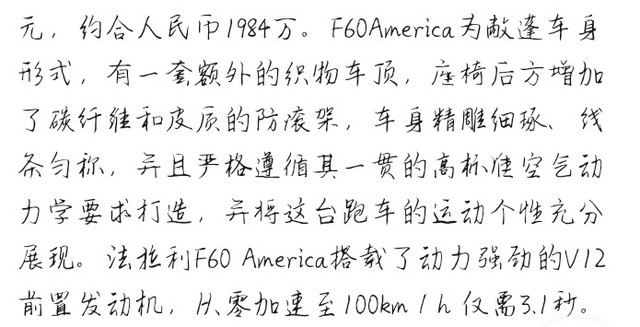 元，约合人民币1984万。F60America为敞蓬车身
形式，有一套额外的织物车顶，座椅后方增加
了碳纤维和皮质的防滚架，车身精雕细琢、线
条匀称，并且严格遵循其一贯的高标准空气动
力学要求打造，并将这台跑车的运动个性充分
展现。法拉利F60 America搭载了动力强劲的V12
前置发动机，从零加速至100km/h仅需3.1秒。